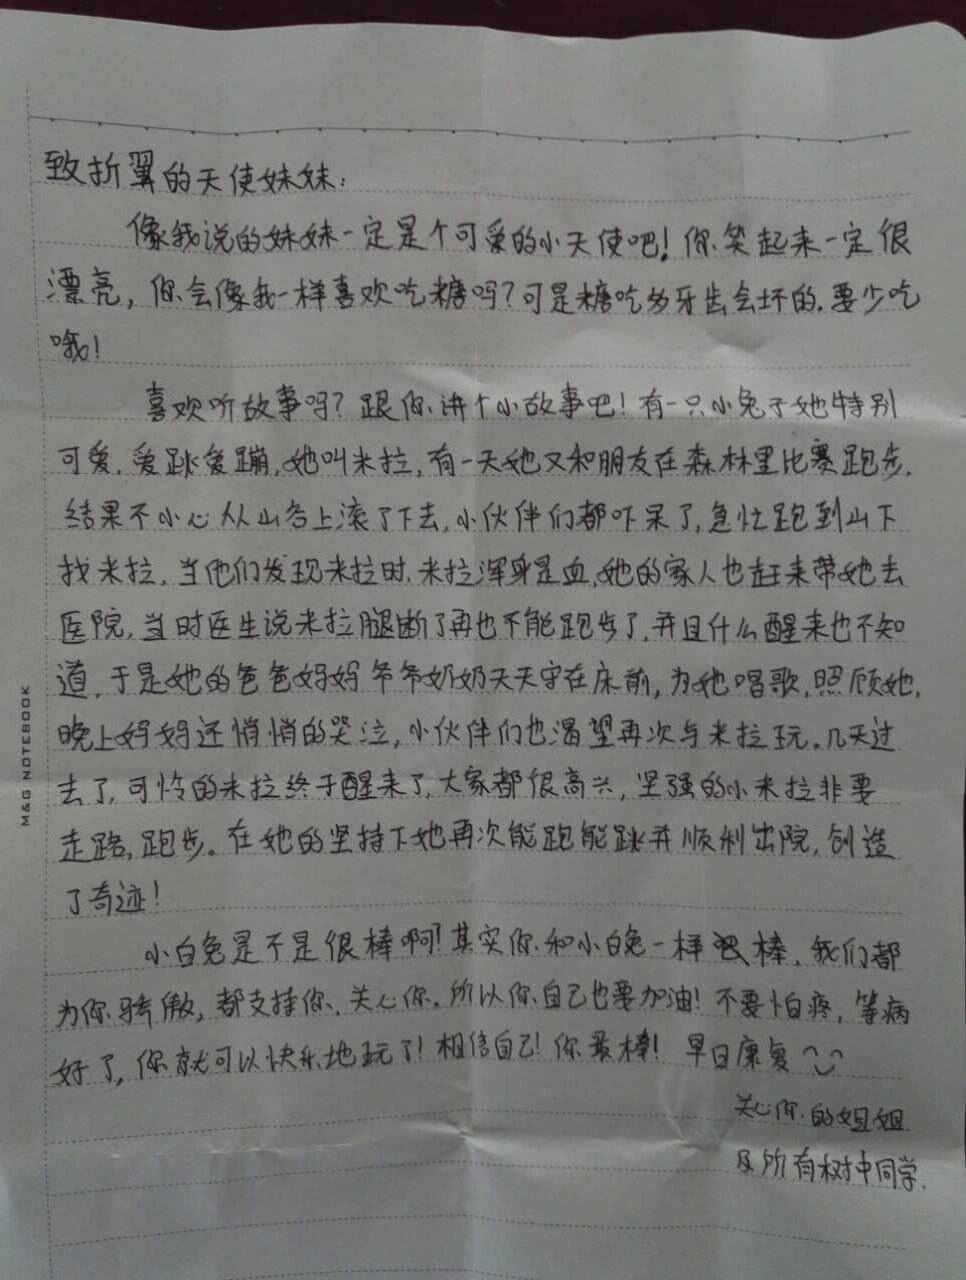 致折翼的天使妹妹：
像我说的妹妹一定是个可爱的小天使吧！你笑起来一定很
漂亮，你会像我一样喜欢吃糖吗？可是糖吃多牙齿会坏的，要少吃
哦！
喜欢听故事吗？跟你讲个小故事吧！有一只小兔子她特别
可爱，爱跳爱蹦，她叫米拉，有一天她又和朋友在森林里比赛跑步，
结果不小心从山谷上滚了下去，小伙伴们都吓呆了，急忙跑到山下
找米拉，当他们发现米拉时，米拉浑身是血，她的家人也赶来带她去
医院，当时医生说米拉腿断了再也不能跑步了，并且什么醒来也不知
道，于是她的爸爸妈妈爷爷奶奶天天守在床前，为她唱歌，照顾她，
晚上妈妈还悄悄的哭泣，小伙伴们也渴望再次与米拉玩。几天过
去了，可怜的米拉终于醒来了，大家都很高兴，坚强的小米拉非要
走路，跑步。在她的坚持下她再次能跑能跳并顺利出院，创造
了奇迹！
小白兔是不是很棒啊？其实你和小白兔一样很棒，我们都
为你骄傲，都支持你，关心你，所以你自己也要加油！不要怕疼，等病
好了，你就可以快乐地玩了！相信自己！你最棒！早日康复
关心你的姐姐
及所有树中同学.
M&G NOTEBOOK